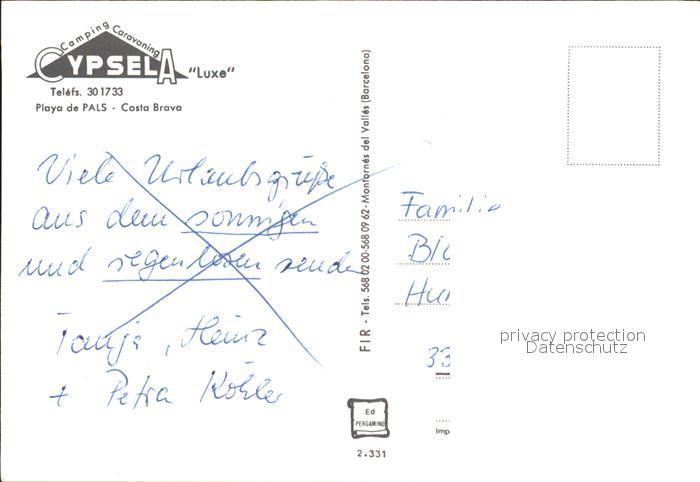 Camping Caravaning
CYPSELA "Luxe"
Teléfs. 301733
Playa de PALS - Costa Brava
Viele Urlaubsgrüße
aus dem sonnigen
und regenlosen senden
Tanja, Heinz
+ Petra Köhler
FIR - Tels. 568 02 00-568 09 62 - Montornés del Vallés (Barcelona)
Ed
PERGAMINO
2.331
Familie
33
Imp
privacy protection
Datenschutz